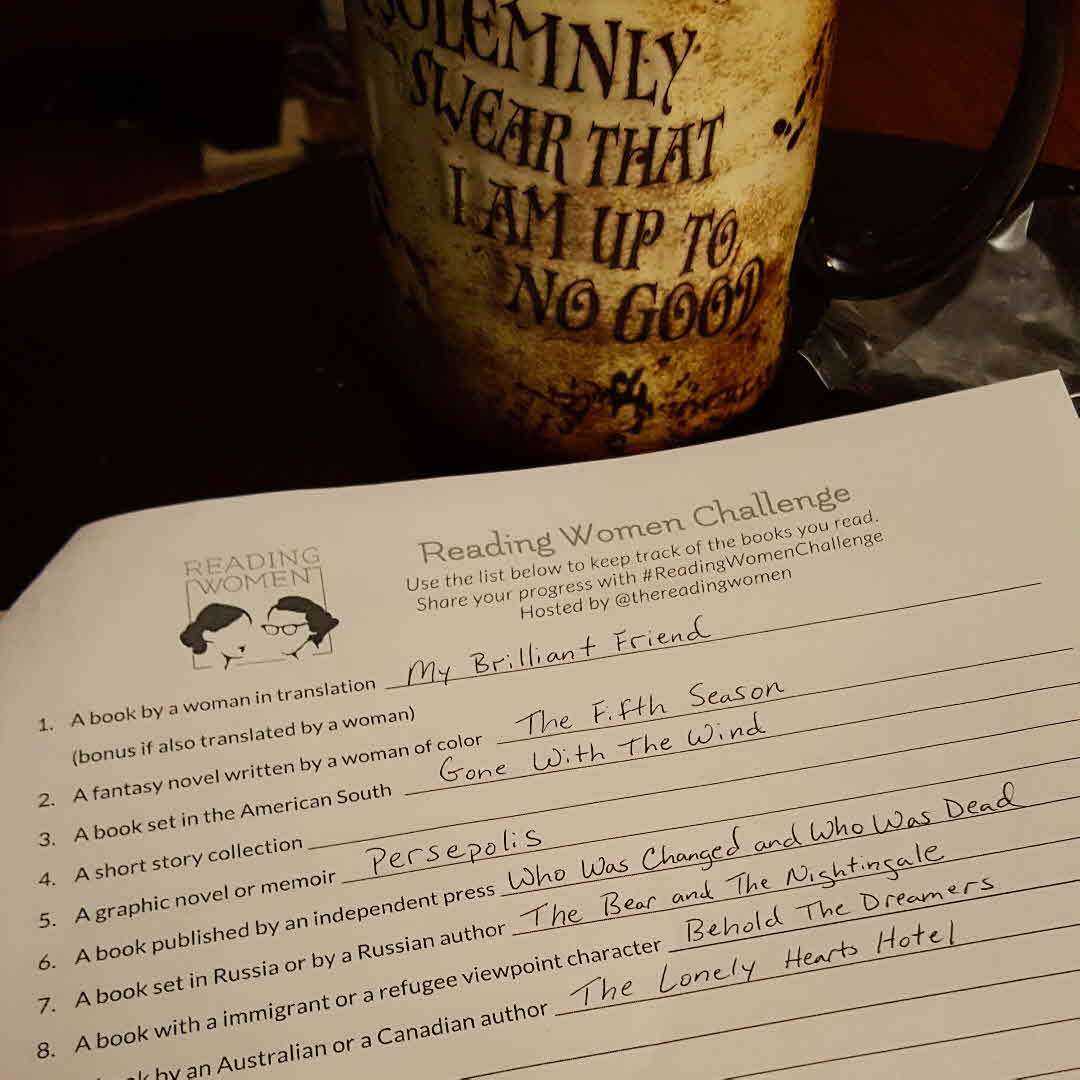 SOLEMNLY
SWEAR THAT
I AM UP TO
NO GOOD
READING
WOMEN
Reading Women Challenge
Use the list below to keep track of the books you read.
Share your progress with #ReadingWomenChallenge
Hosted by @thereadingwomen
1. A book by a woman in translation My Brilliant Friend
(bonus if also translated by a woman)
2. A fantasy novel written by a woman of color The Fifth Season
3. A book set in the American South Gone With The Wind
4. A short story collection
5. A graphic novel or memoir Persepolis
6. A book published by an independent press Who Was Changed and Who Was Dead
7. A book set in Russia or by a Russian author The Bear and The Nightingale
8. A book with a immigrant or a refugee viewpoint character Behold The Dreamers
by an Australian or a Canadian author The Lonely Hearts Hotel